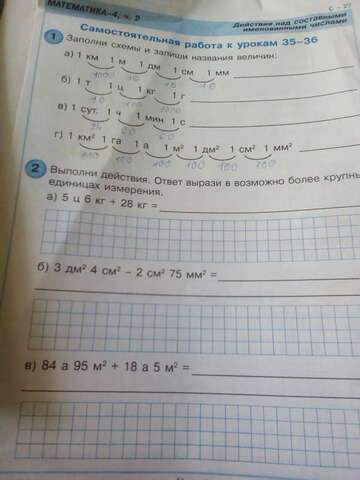 МАТЕМАТИКА–4, ч. 2
С – 27
Действия над составными
именованными числами
Самостоятельная работа к урокам 35–36
1 Заполни схемы и запиши названия величин:
а) 1 км 1 м 1 дм 1 см 1 мм
1000 10 10 10
б) 1 т 1 ц 1 кг 1 г
10 100 1000
в) 1 сут. 1 ч 1 мин 1 с
24 60 60
г) 1 км² 1 га 1 а 1 м² 1 дм² 1 см² 1 мм²
100 100 100 100 100 100
2 Выполни действия. Ответ вырази в возможно более крупны
единицах измерения.
а) 5 ц 6 кг + 28 кг =
б) 3 дм² 4 см² – 2 см² 75 мм² =
в) 84 а 95 м² + 18 а 5 м² =